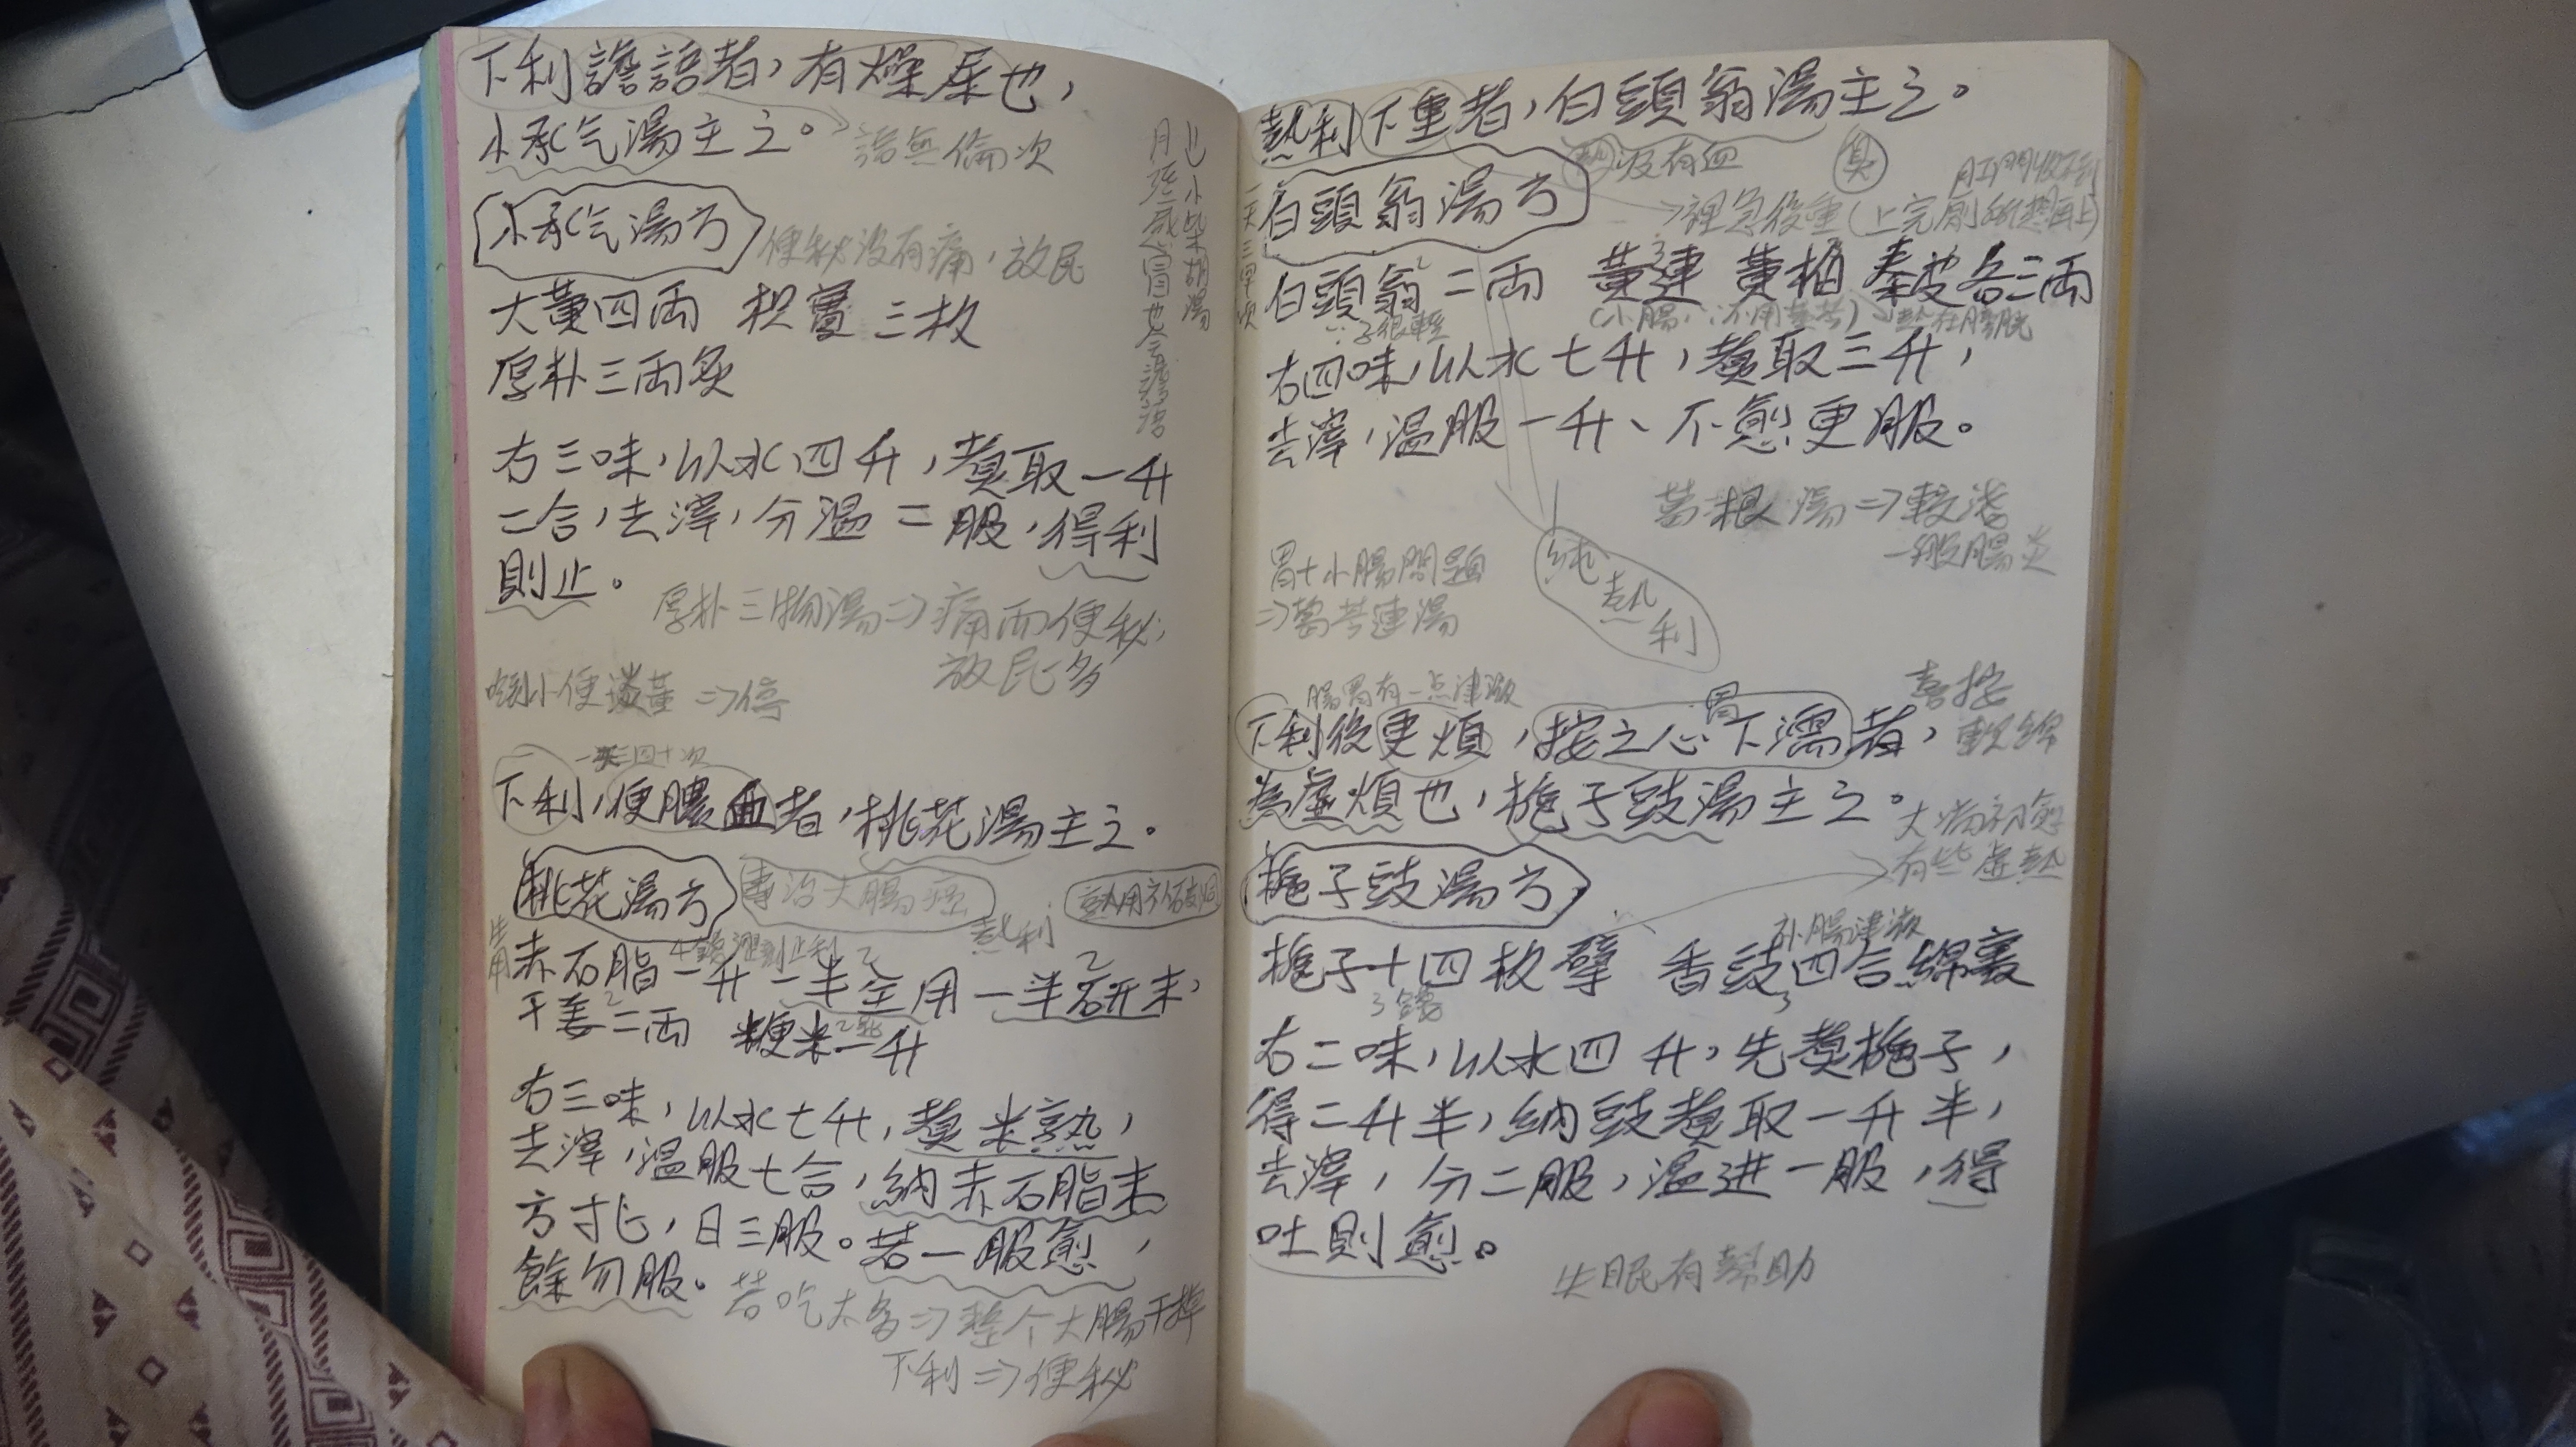 下利譫語者，有燥屎也，
小承气湯主之。
語無倫次
小承气湯方
便秘沒有痛，放屁
大黃四兩 枳實三枚
厚朴三兩炙
右三味，以水四升，煑取一升
二合，去滓，分温二服，得利
則止。
厚朴三物湯⇒痛而便秘，
放屁多
⇒停
月經感冒也會譫語
小柴胡湯
下利，便膿血者，桃花湯主之。
桃花湯方
專治大腸癌
熱利
生用
赤石脂一升一半全用一半研末，
干姜二兩 粳米一升
右三味，以水七升，煑米熟，
去滓，温服七合，納赤石脂末
方寸匕，日三服。若一服愈，
餘勿服。
若吃太多⇒整个大腸干掉
下利⇒便秘
熱利下重者，白頭翁湯主之。
沒有血
臭
白頭翁湯方
裡急後重(上完廁所想再上)
白頭翁二兩 黃連 黃柏 秦皮各三兩
(小腸∴不用黃芩)
熱在膀胱
右四味，以水七升，煑取三升，
去滓，温服一升、不愈更服。
葛根湯⇒較淺
一般腸炎
胃+小腸問題
⇒葛芩連湯
純熱利
腸胃有一点津液
胃
喜按
下利後更煩，按之心下濡者，
為虛煩也，梔子豉湯主之。
大病初愈
有些虛熱
梔子豉湯方
補腸津液
梔子十四枚擘 香豉四合綿裹
3錢
3
右二味，以水四升，先煑梔子，
得二升半，納豉煑取一升半，
去滓，分二服，温进一服，得
吐則愈。
失眠有幫助